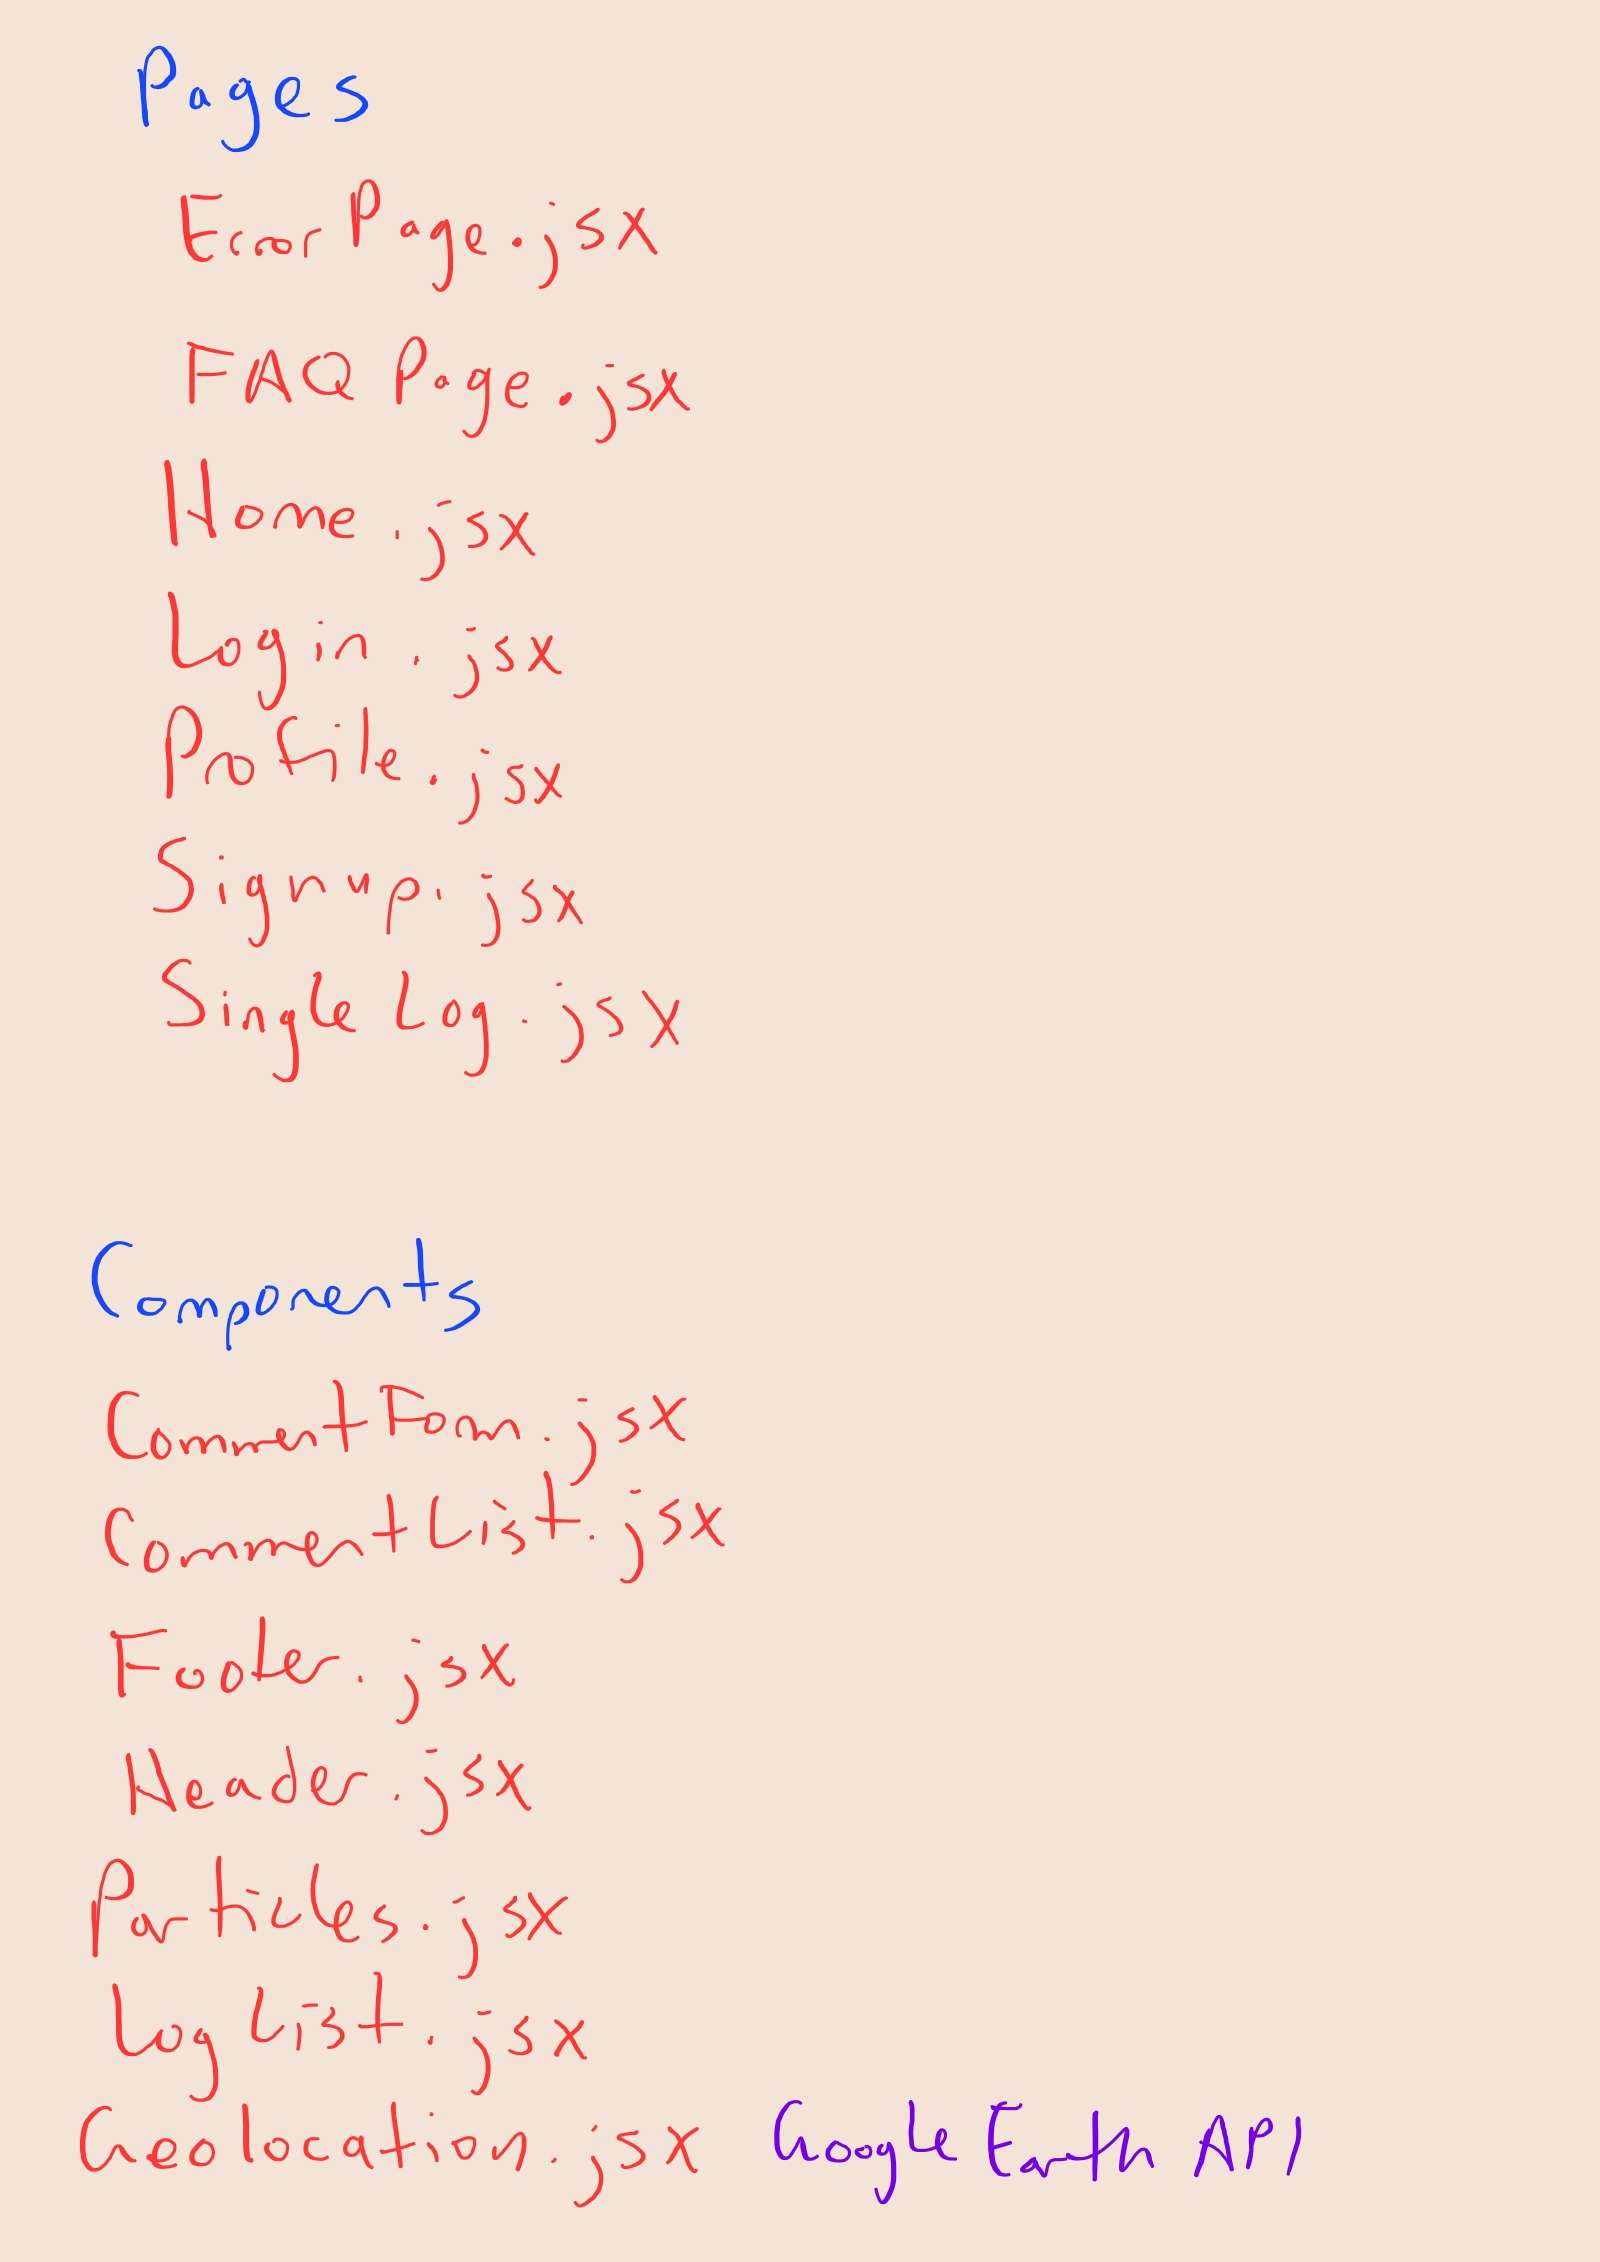 Pages
ErrorPage.jsx
FAQ Page.jsx
Home.jsx
Login.jsx
Profile.jsx
Signup.jsx
Single Log.jsx
Components
CommentForm.jsx
CommentList.jsx
Footer.jsx
Header.jsx
Particles.jsx
LogList.jsx
Geolocation.jsx Google Earth API